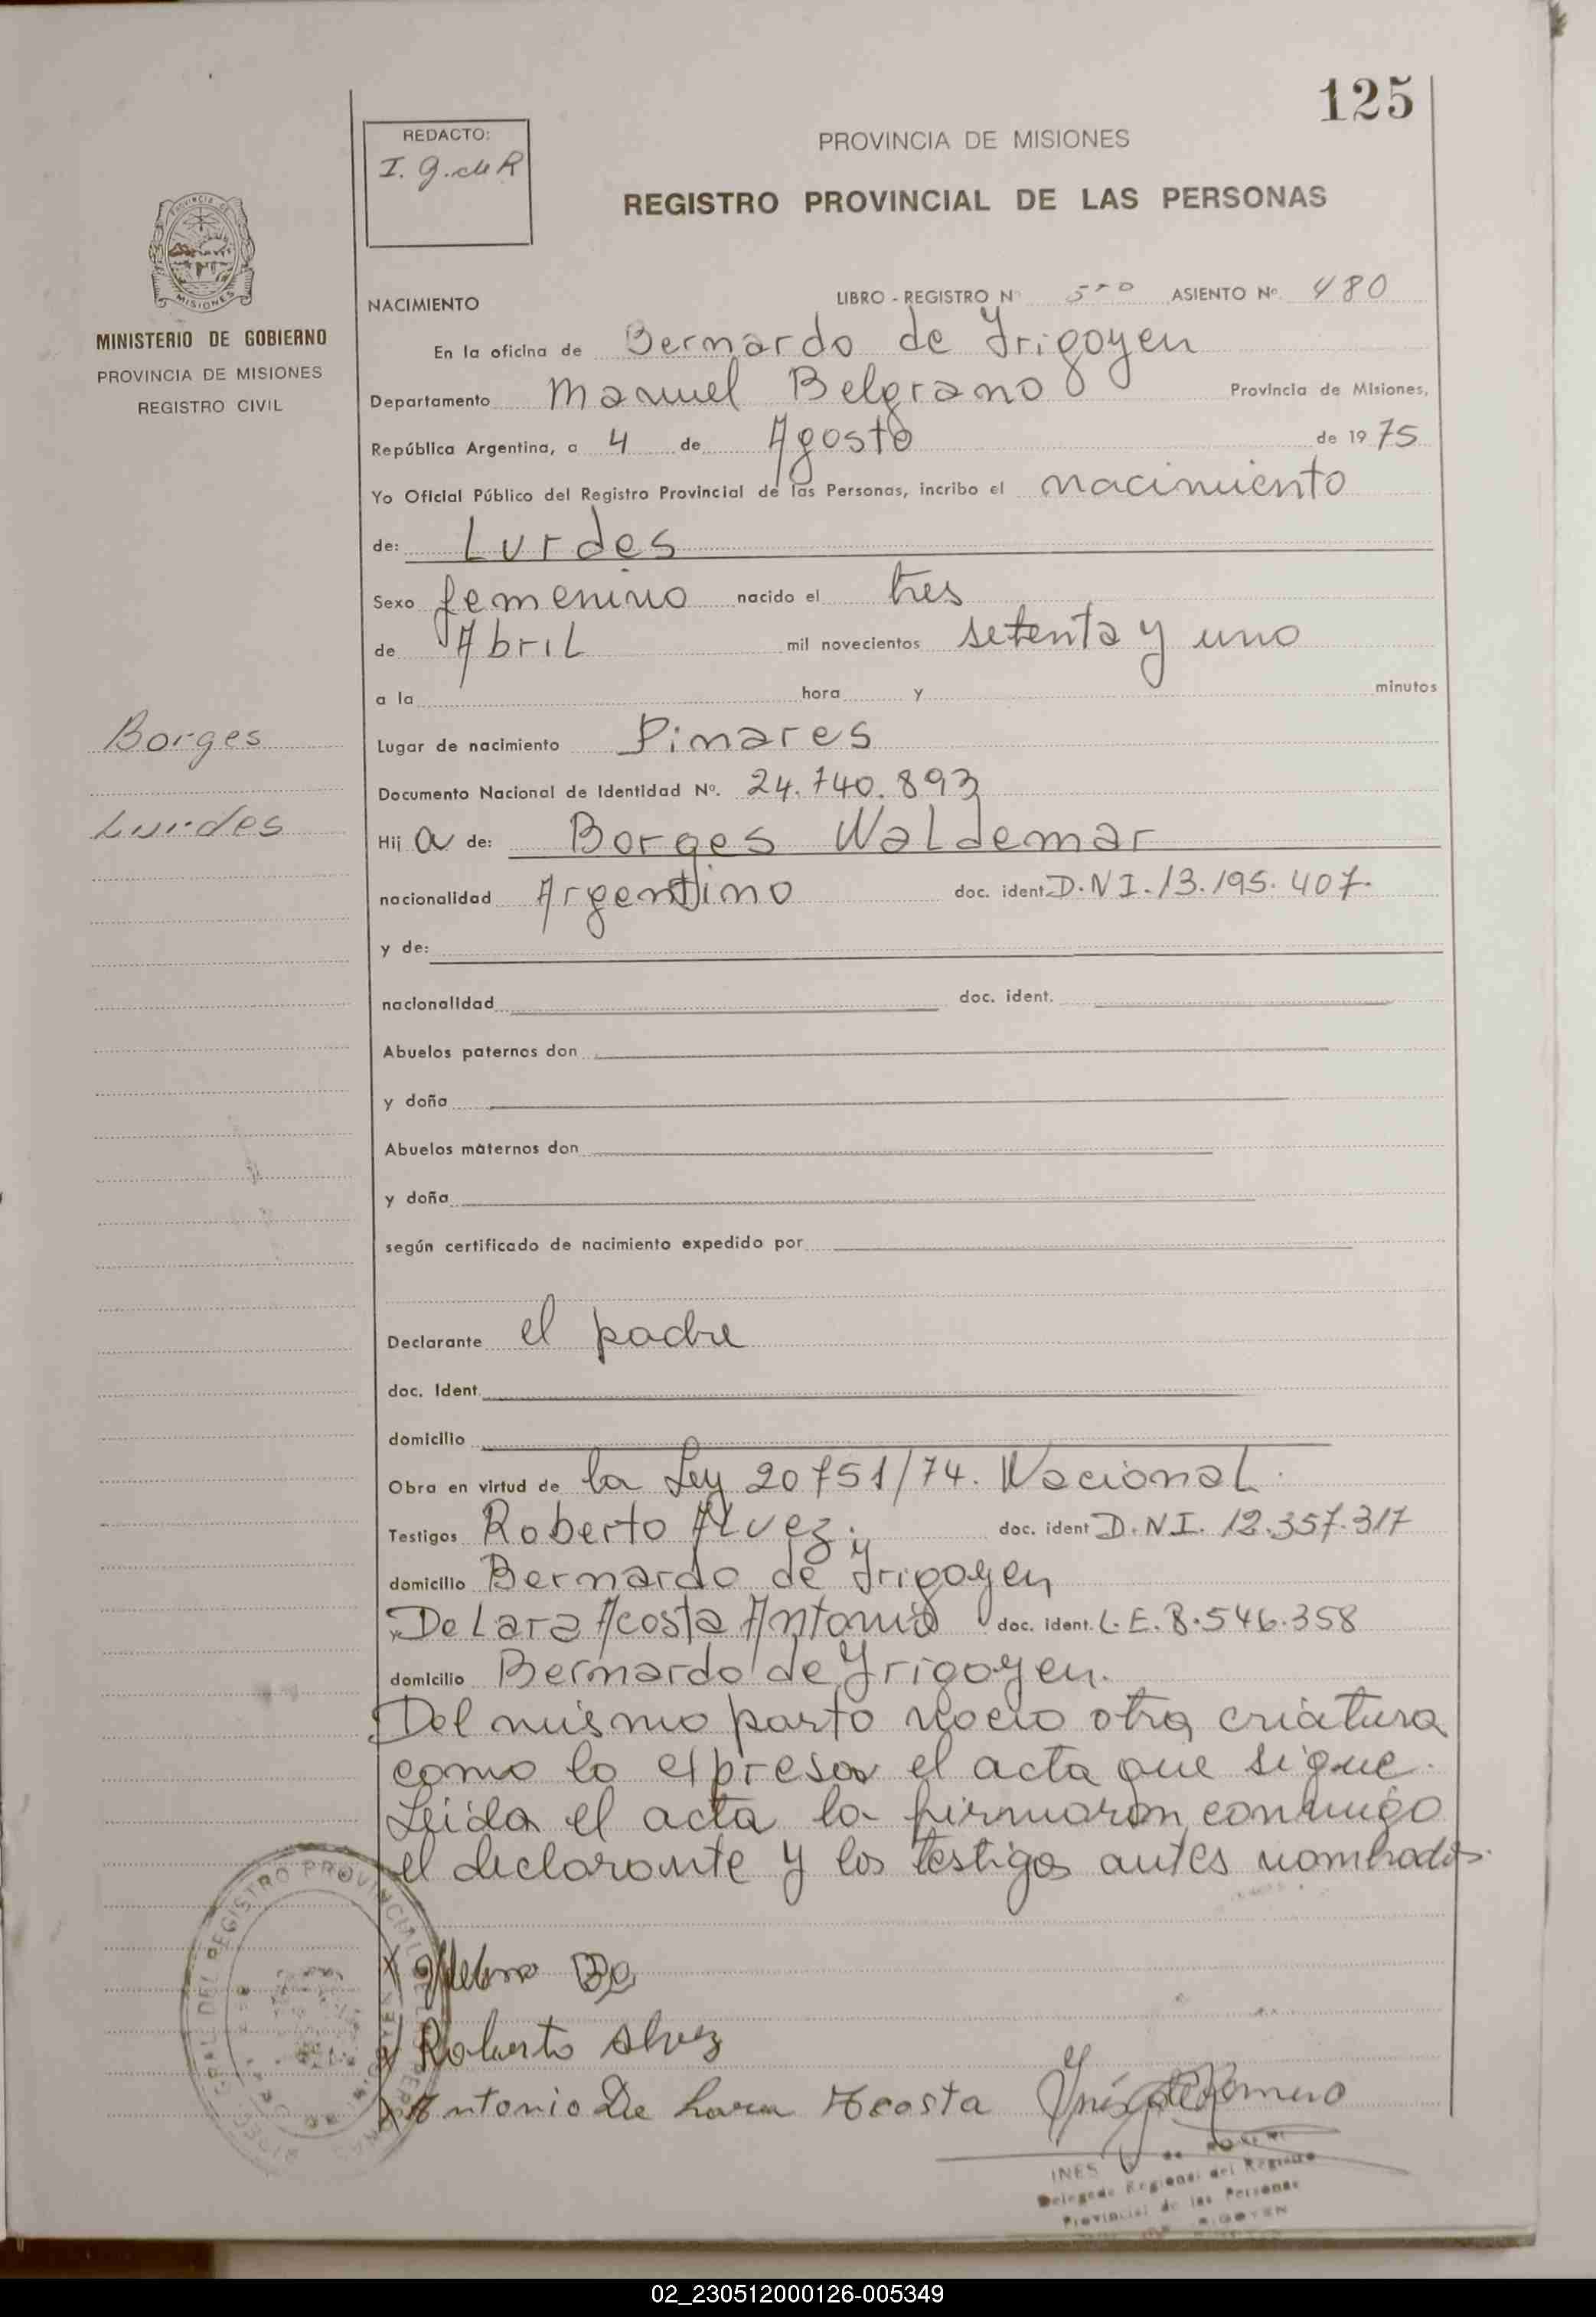 125
REDACTO:
I. G. de R
PROVINCIA DE MISIONES
REGISTRO PROVINCIAL DE LAS PERSONAS
PROVINCIA DE
MISIONES
MINISTERIO DE GOBIERNO
PROVINCIA DE MISIONES
REGISTRO CIVIL
NACIMIENTO
LIBRO - REGISTRO Nº 5to ASIENTO Nº 480
En la oficina de Bernardo de Yrigoyen
Departamento Manuel Belgrano Provincia de Misiones,
República Argentina, a 4 de Agosto de 1975
Yo Oficial Público del Registro Provincial de las Personas, incribo el nacimiento
de: Lurdes
Sexo femenino nacido el tres
de Abril mil novecientos setenta y uno
a la hora y minutos
Borges
Lugar de nacimiento Pinares
Documento Nacional de Identidad Nº. 24.740.893
Lurdes
Hij a de: Borges Waldemar
nacionalidad Argentino doc. ident D.N.I. 13.195.407.
y de:
nacionalidad doc. ident.
Abuelos paternos don
y doña
Abuelos maternos don
y doña
según certificado de nacimiento expedido por
Declarante el padre
doc. Ident
domicilio
Obra en virtud de la Ley 20751/74. Nacional.
Testigos Roberto Alvez. doc. ident D.N.I. 12.357.317
domicilio Bernardo de Yrigoyen
De Lara Acosta Antonio doc. ident. L.E. 8.546.358
domicilio Bernardo de Yrigoyen.
Del mismo parto nacio otra criatura
como lo expresa el acta que sigue.
Leida el acta la firmaron conmigo
el declarante y los testigos antes nombrados.
Roberto Alvez
Antonio De Lara Acosta
Inés G de Romero
INES G de ROMERO
Delegada Regional del Registro
Provincial de las Personas
02_230512000126-005349